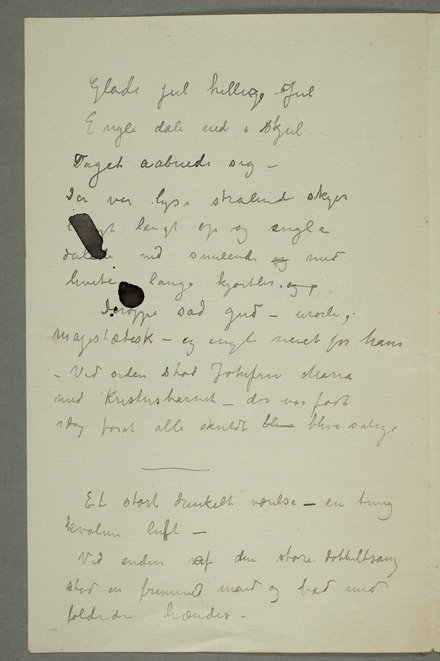 Glade jul hellige Jul
Engle dale ned i Skjul
Taget aabnede seg –
Der var lyse straalend skyer
langt op og engle
ned smilende og med
hvite lange kjortler. og
Deroppe sad gud – urolig,
majestætisk – og engle for hans
– Ved siden stod Jomfru Maria
med Kristusbarnet – der var født
idag forat alle skulde blive blive salige
Et stort dunkelt værelse – en tung
kvalm luft –
Ved enden af den store dobbeltsæng
stod en fremmed mand og bad med
foldede hænder.